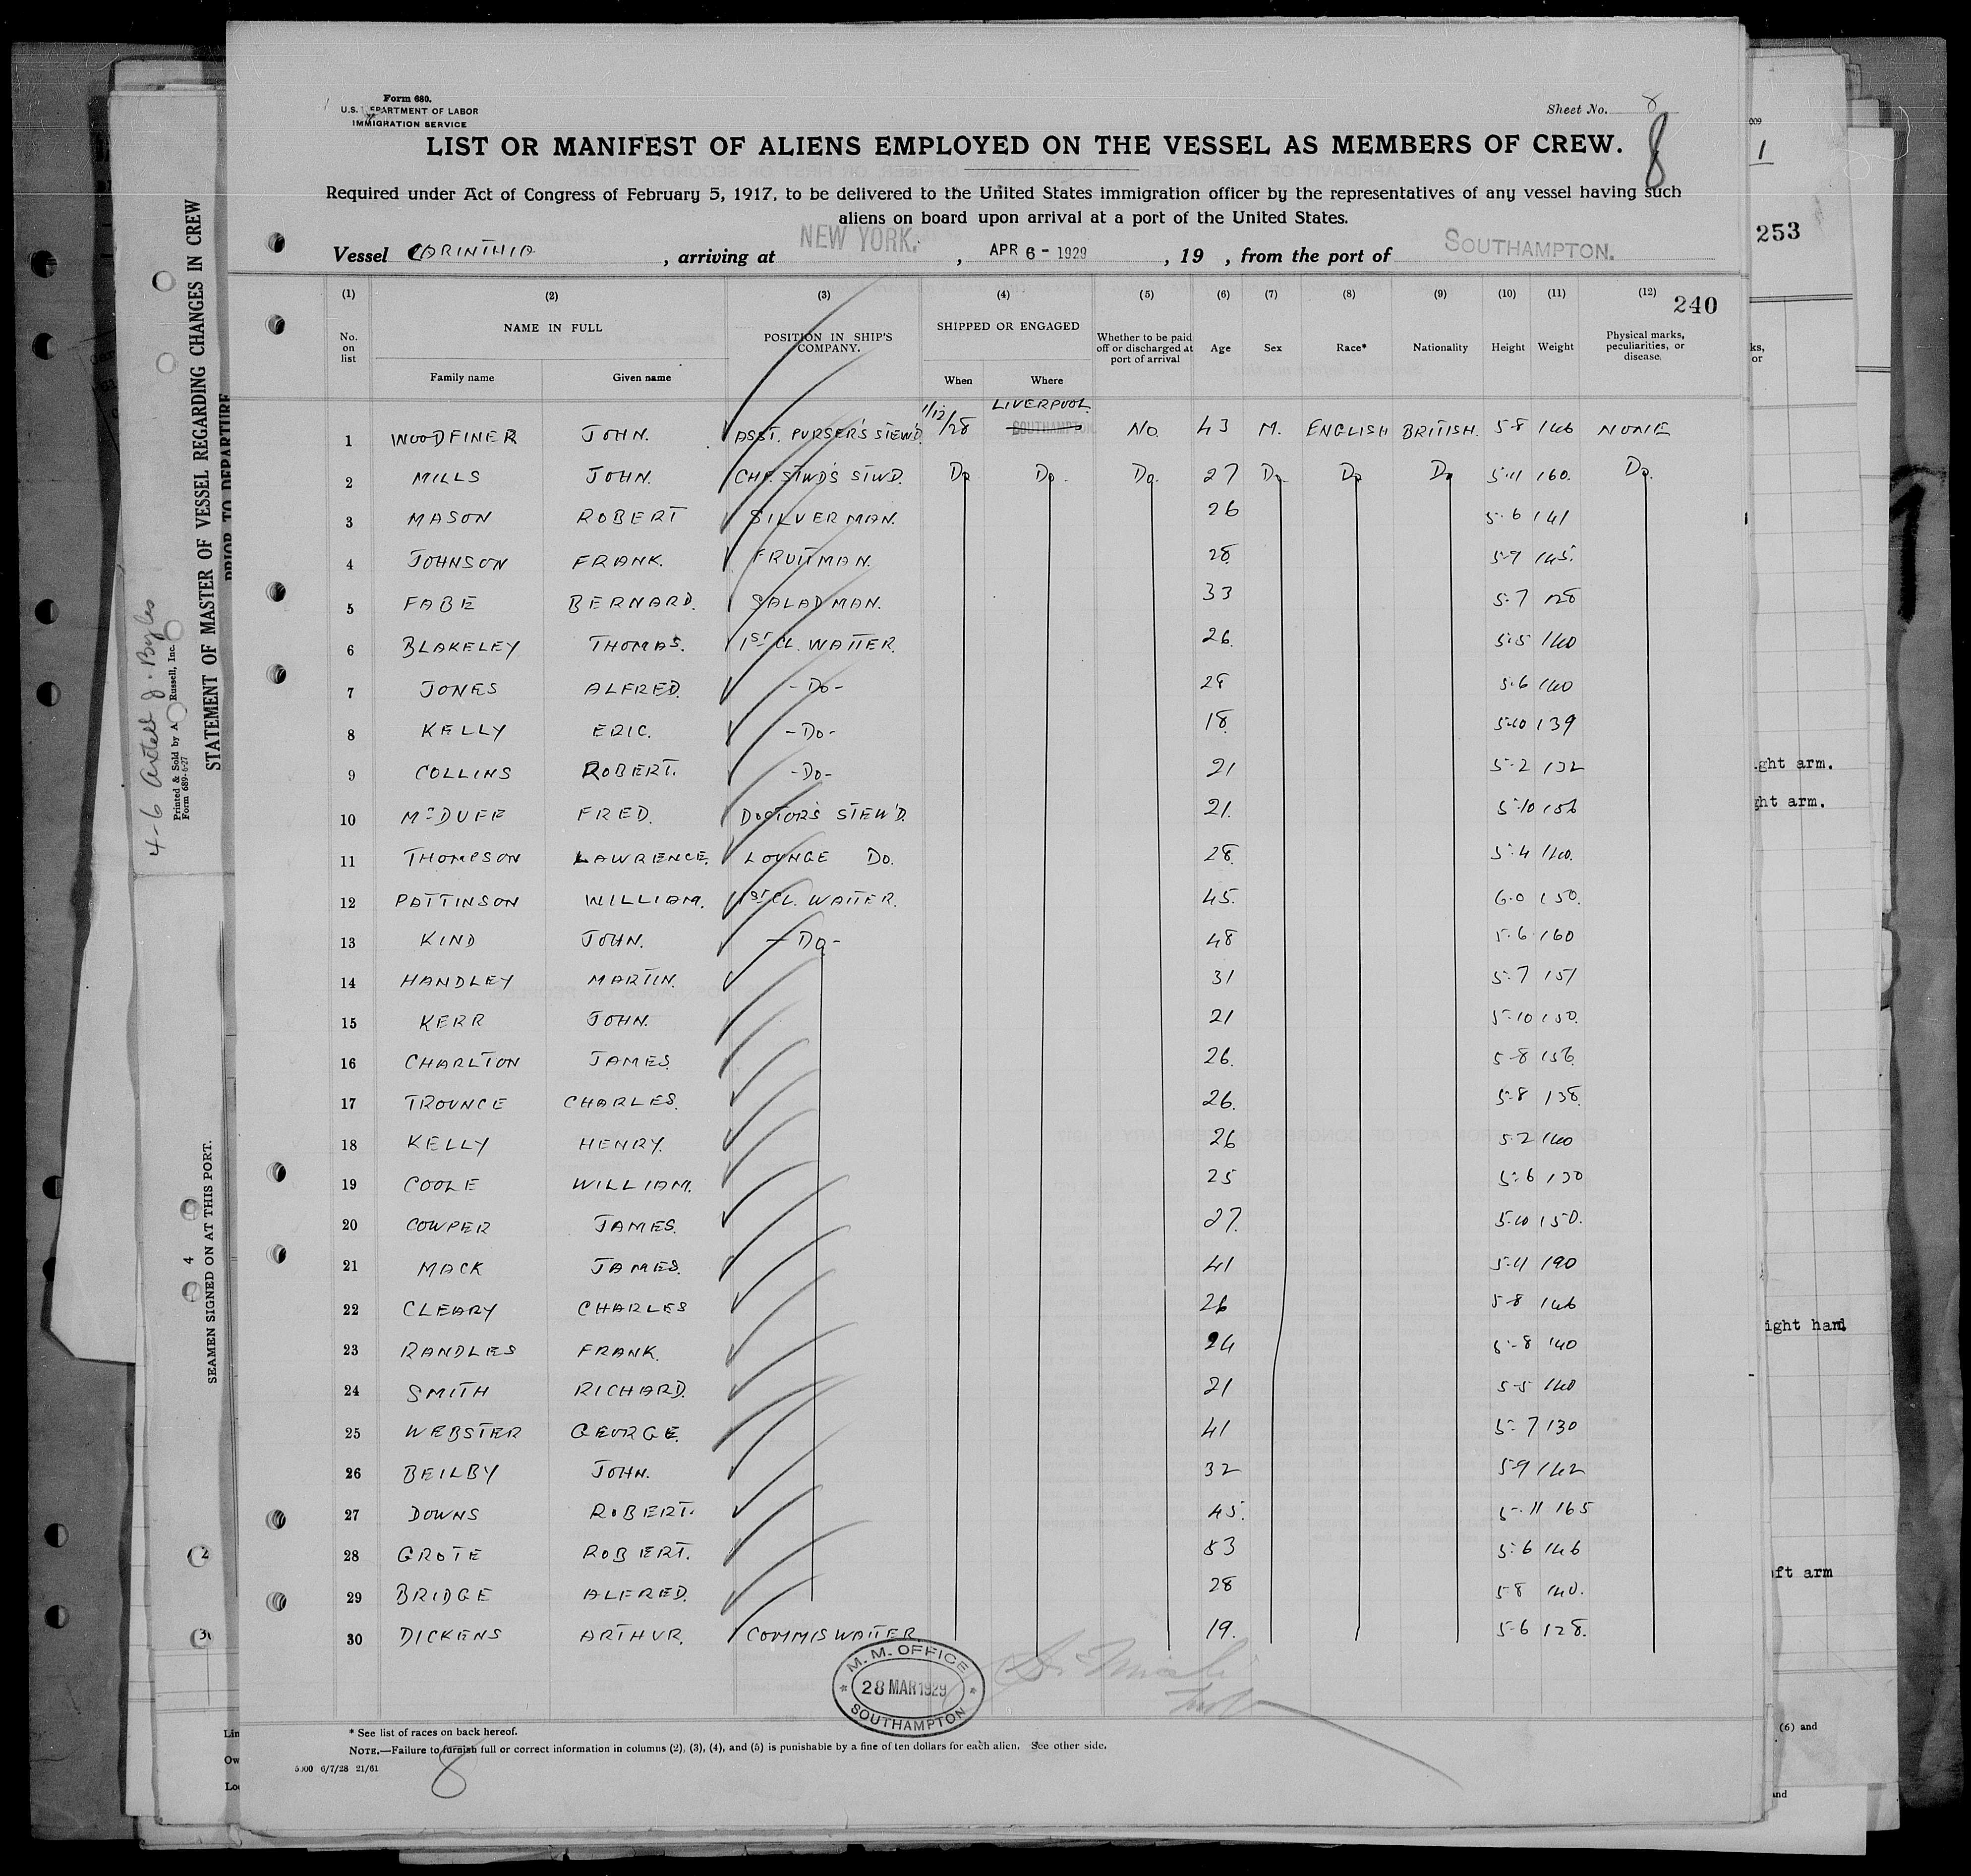 Form 680.
U.S. DEPARTMENT OF LABOR
IMMIGRATION SERVICE
Sheet No. 8
8
LIST OR MANIFEST OF ALIENS EMPLOYED ON THE VESSEL AS MEMBERS OF CREW.
Required under Act of Congress of February 5, 1917, to be delivered to the United States immigration officer by the representatives of any vessel having such
aliens on board upon arrival at a port of the United States.
Vessel CARINTHIA, arriving at NEW YORK., APR 6 - 1929, 19 , from the port of SOUTHAMPTON.
240
(1) (2) (3) (4) (5) (6) (7) (8) (9) (10) (11) (12)
No. on list NAME IN FULL POSITION IN SHIP'S COMPANY. SHIPPED OR ENGAGED Whether to be paid off or discharged at port of arrival Age Sex Race* Nationality Height Weight Physical marks, peculiarities, or disease.
Family name Given name When Where
1 WOODFINER JOHN. ASST. PURSER'S STEW'D. 1/12/28 LIVERPOOL SOUTHAMPTON No. 43 M. ENGLISH BRITISH. 5-8 146 NONE
2 MILLS JOHN. CHF. STWD'S STWD. Do Do. Do. 27 Do Do Do 5-11 160. Do.
3 MASON ROBERT SILVERMAN. 26 5-6 141
4 JOHNSON FRANK. FRUITMAN. 28. 5-7 145.
5 FABE BERNARD. SALADMAN. 33 5-7 128
6 BLAKELEY THOMAS. 1ST CL. WAITER. 26. 5-5 140
7 JONES ALFRED. -Do- 28 5-6 140
8 KELLY ERIC. -Do- 18. 5-10 139
9 COLLINS ROBERT. -Do- 21 5-2 132
10 McDUFF FRED. DOCTOR'S STEW'D. 21. 5-10 156
11 THOMPSON LAWRENCE. LOUNGE Do. 28. 5-4 140.
12 PATTINSON WILLIAM. 1ST CL. WAITER. 45. 6-0 150.
13 KIND JOHN. -Do- 48 5-6 160
14 HANDLEY MARTIN. 31 5-7 151
15 KERR JOHN. 21 5-10 150.
16 CHARLTON JAMES. 26. 5-8 156.
17 TROUNCE CHARLES. 26. 5-8 138.
18 KELLY HENRY. 26 5-2 140
19 COOLE WILLIAM. 25 5-6 130
20 COWPER JAMES. 27. 5-10 150.
21 MACK JAMES. 41 5-11 190
22 CLEARY CHARLES 26 5-8 146
23 RANDLES FRANK. 24 5-8 140
24 SMITH RICHARD. 21 5-5 140
25 WEBSTER GEORGE. 41 5-7 130
26 BEILBY JOHN. 32 5-9 142
27 DOWNS ROBERT. 45. 5-11 165
28 GROTE ROBERT. 53 5-6 146
29 BRIDGE ALFRED. 28 5-8 140.
30 DICKENS ARTHUR. COMMIS WAITER 19. 5-6 128.
M. M. OFFICE
28 MAR 1929
SOUTHAMPTON
* See list of races on back hereof.
NOTE.—Failure to furnish full or correct information in columns (2), (3), (4), and (5) is punishable by a fine of ten dollars for each alien. See other side.
6/7/28 21/61
8
STATEMENT OF MASTER OF VESSEL REGARDING CHANGES IN CREW
PRIOR TO DEPARTURE
Form 689-6-27
SEAMEN SIGNED ON AT THIS PORT.
4
2
3
1
253
ght arm.
ght arm.
ight hand
ft arm
(6) and
and